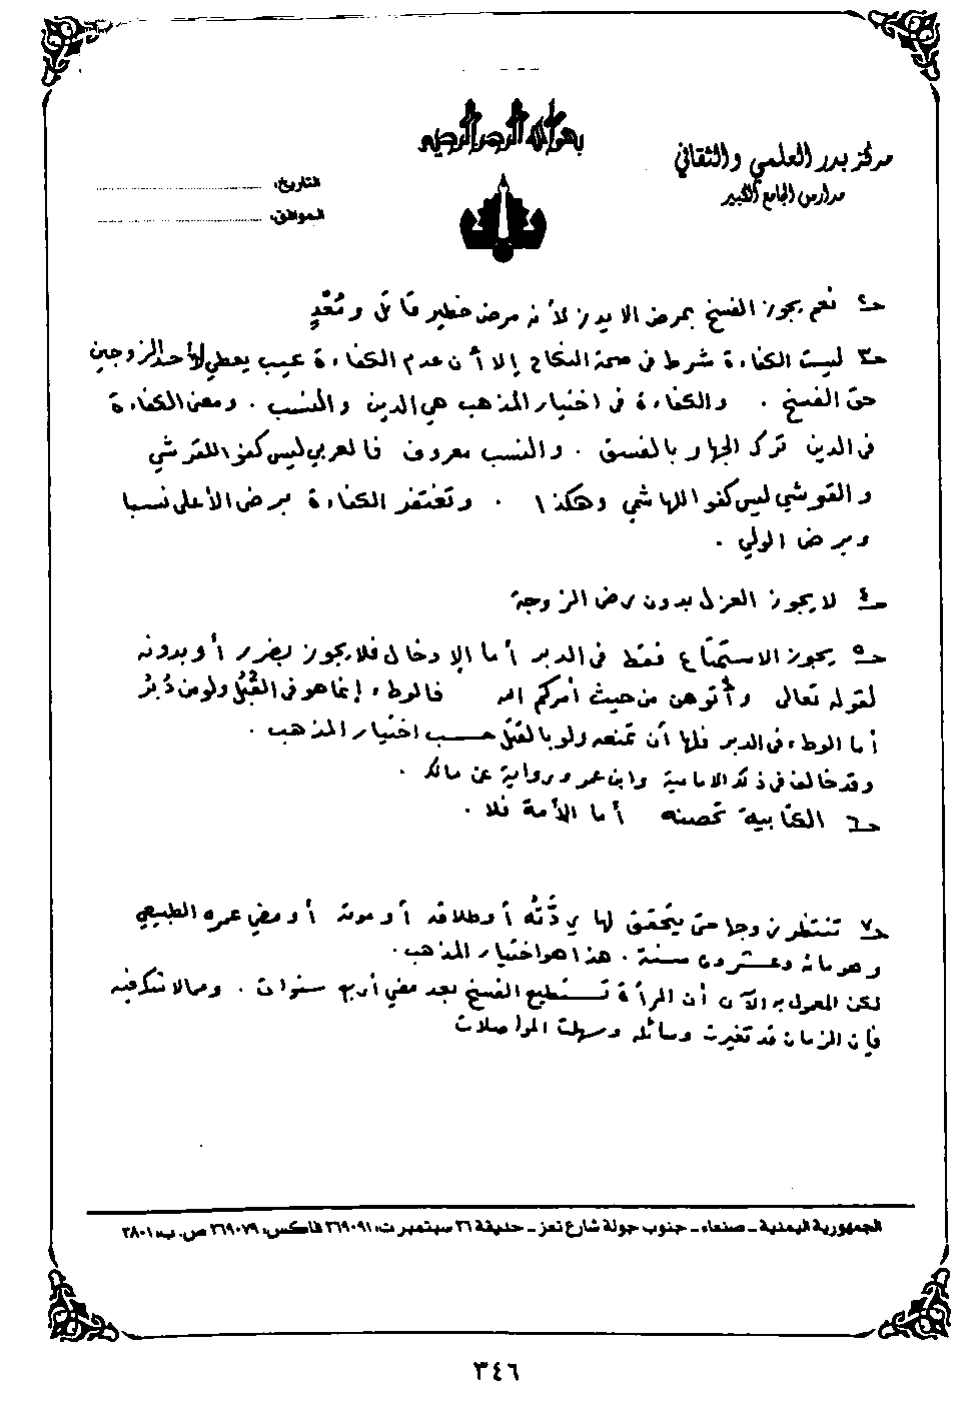 بسم الله الرحمن الرحيم
مركز بدر العلمي والثقافي
مدارس الجامع الكبير
التاريخ:
الموافق:
ج٢ نعم يجوز الفسخ بمرض الايدز لأنه مرض خطير قاتل ومُعدٍ
ج٣ ليست الكفاءة شرط في صحة النكاح إلا أن عدم الكفاءة عيب يعطي لأحد الزوجين
حق الفسخ . والكفاءة في اختيار المذهب هي الدين والنسب . ومعنى الكفاءة
في الدين ترك الجهار بالفسق . والنسب معروف فالعربي ليس كفوا للقرشي
والقرشي ليس كفوا للهاشمي وهكذا . وتغتفر الكفاءة برضى الأعلى نسبا
وبرضى الولي .
ج٤ لا يجوز العزل بدون رضى الزوجة
ج٥ يجوز الاستمتاع فقط في الدبر أما الإدخال فلا يجوز بضرر أو بدونه
لقوله تعالى وأتوهن من حيث أمركم الله فالوطء إنما هو في القُبُل ولو من دُبُر
أما الوطء في الدبر فلها أن تمنعه ولو بالقتل حسب اختيار المذهب .
وقد خالف في ذلك الامامية وابن عمر ورواية عن مالك .
ج٦ الكتابية تحصنه أما الأمة فلا .
ج٧ تنتظر زوجها حتى يتحقق لها رِدَّتُه أو طلاقه أو موته أو مضي عمره الطبيعي
وهو مائة وعشرون سنة . هذا هو اختيار المذهب .
لكن المعمول به الآن أن المرأة تستطيع الفسخ بعد مضي أربع سنوات . ومما لا شك فيه
فإن الزمان قد تغيرت وسائله وسهلت المواصلات
الجمهورية اليمنية - صنعاء - جنوب جولة شارع تعز - حديقة ٢٦ سبتمبر ت: ٢٦٩٠٩١ فاكس: ٢٦٩٠٧٩ ص.ب: ٣٨٠١
٣٤٦